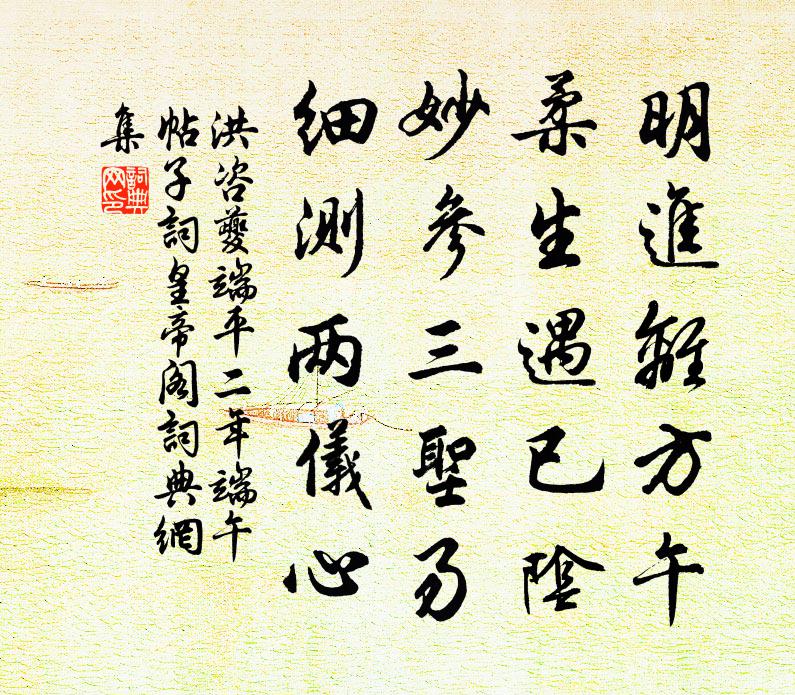 明進離方午
柔生遇已陰
妙參三聖易
細測兩儀心
洪咨夔端平二年端午
帖子詞皇帝閣詞典網
集
詞典
网印